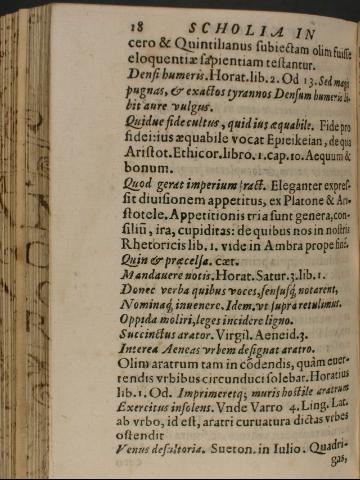 18 SCHOLIA IN
cero & Quintilianus subiectam olim fuisse
eloquentiæ sapientiam testantur.
Densi humeris. Horat. lib. 2. Od 13. Sed magis
pugnas, & exactos tyrannos Densum humeris bi-
bit aure vulgus.
Quidue fide cultus, quid ius æquabile. Fide pro
fidei: ius æquabile vocat Epieikeian, de qua
Aristot. Ethicor. libro. 1. cap. 10. Aequum &
bonum.
Quod gerat imperium fract. Eleganter expres-
sit diuisionem appetitus, ex Platone & Ari-
stotele. Appetitionis tria sunt genera, con-
siliũ, ira, cupiditas: de quibus nos in nostris
Rhetoricis lib. 1. vide in Ambra prope finẽ.
Quin & præcelsa. cæt.
Mandauere notis. Horat. Satur. 3. lib. 1.
Donec verba quibus voces, sensusq́, notarent,
Nominaq́, inuenere. Idem. vt supra retulimus.
Oppida moliri, leges incidere ligno.
Succinctus arator. Virgil. Aeneid. 3.
Interea Aeneas vrbem designat aratro.
Olim aratrum tam in cõdendis, quàm euer-
tendis vrbibus circunduci solebat. Horatius
lib. 1. Od. Imprimeretq́; muris hostile aratrum
Exercitus insolens. Vnde Varro 4. Ling. Lat.
ab vrbo, id est, aratri curuatura dictas vrbes
ostendit
Venus desultoria. Sueton. in Iulio. Quadri-
gas,